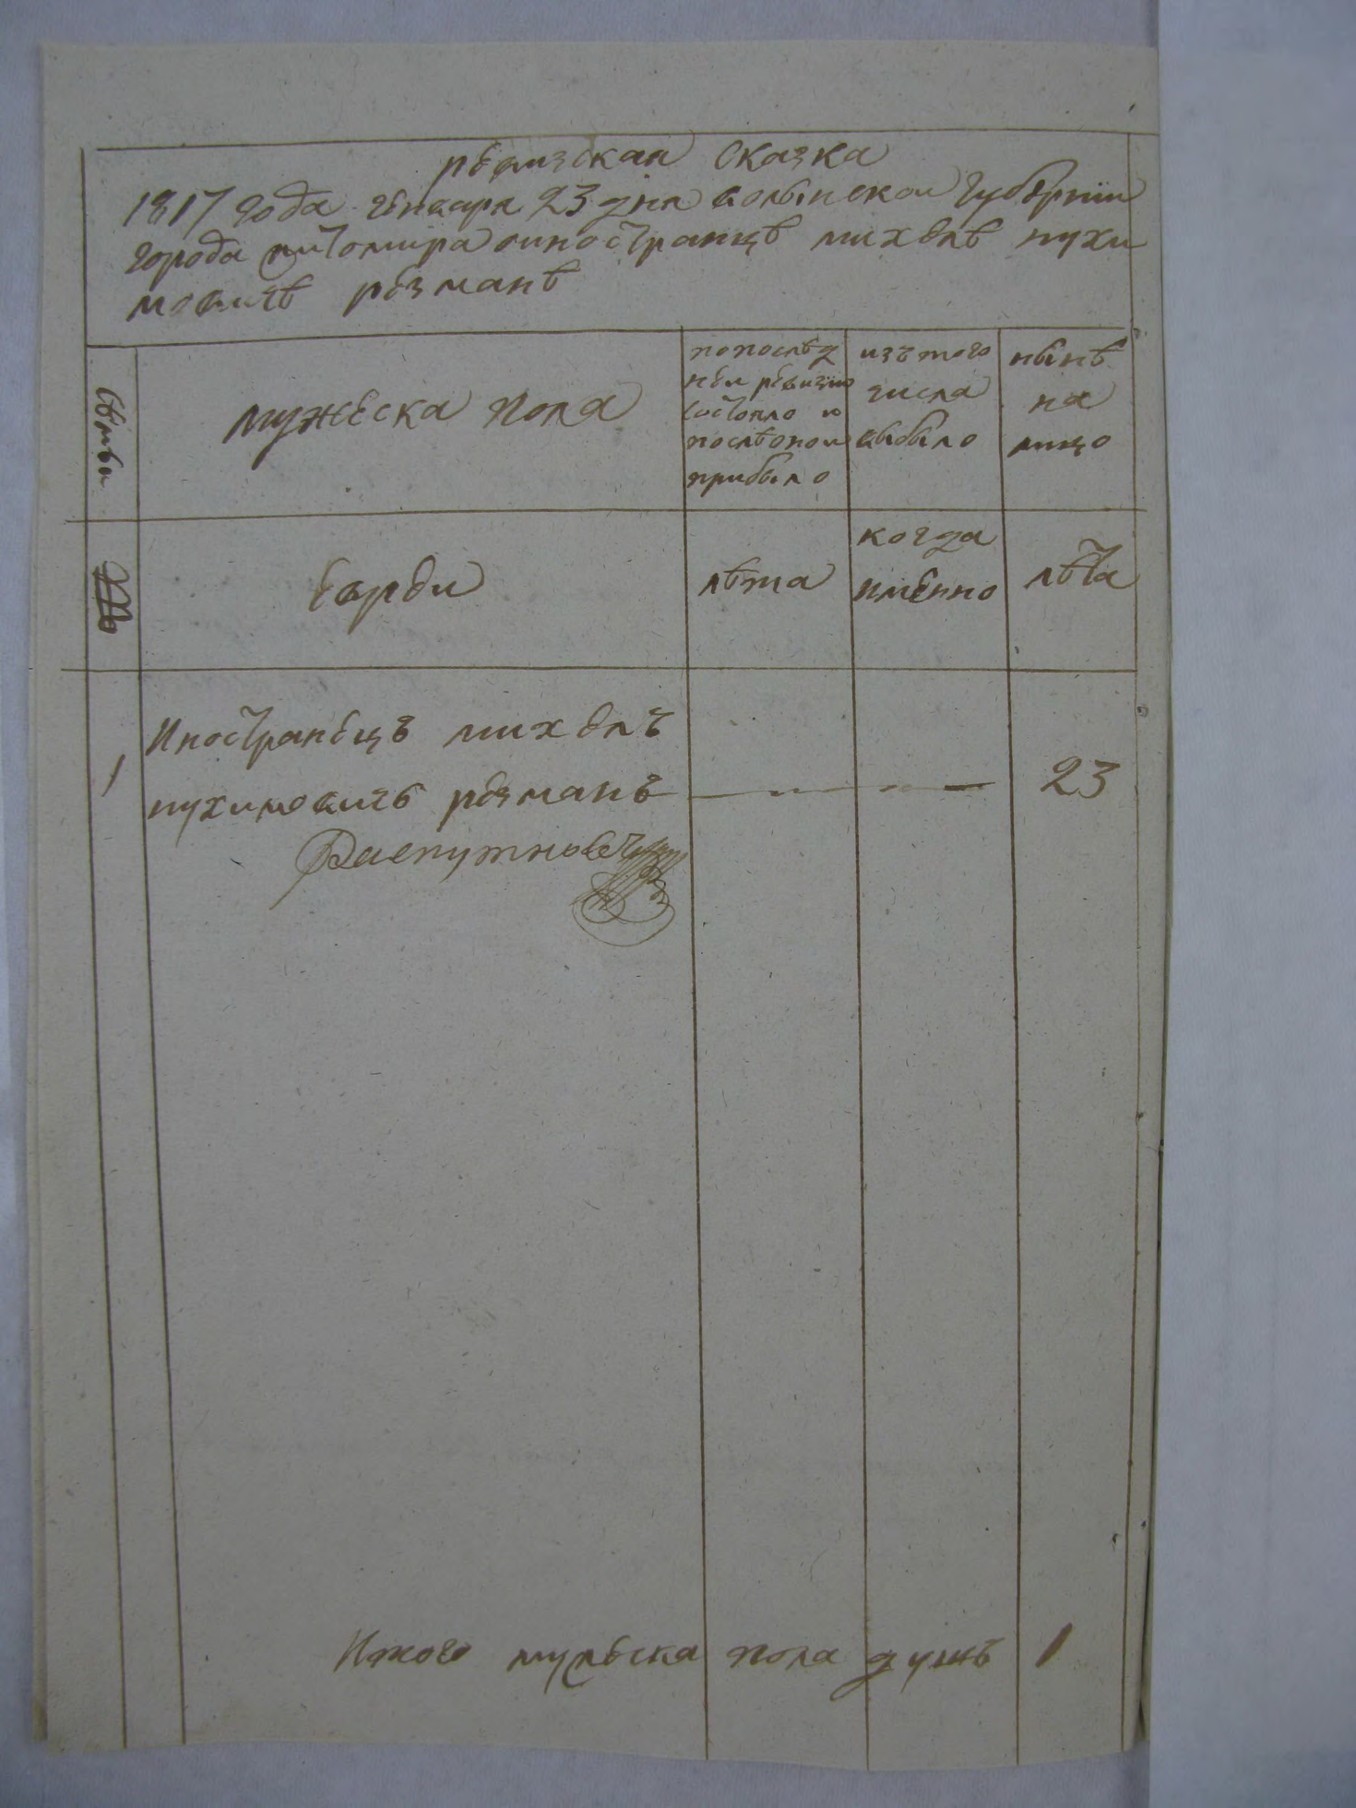 ревизская сказка
1817 года генваря 23 дня волынской губернии
города житомира о иностранцѣ михелѣ нухи
мовичѣ резманѣ
семьи
мужеска пола
по послѣд
ней ревизии
состояло и
послѣ оной
прибыло
изъ того
числа
выбыло
нынѣ
на
лицо
евреи
лѣта
когда
именно
лѣта
1
Иностранецъ михель
нухимовичъ резманъ
23
Итого мужеска пола душъ 1